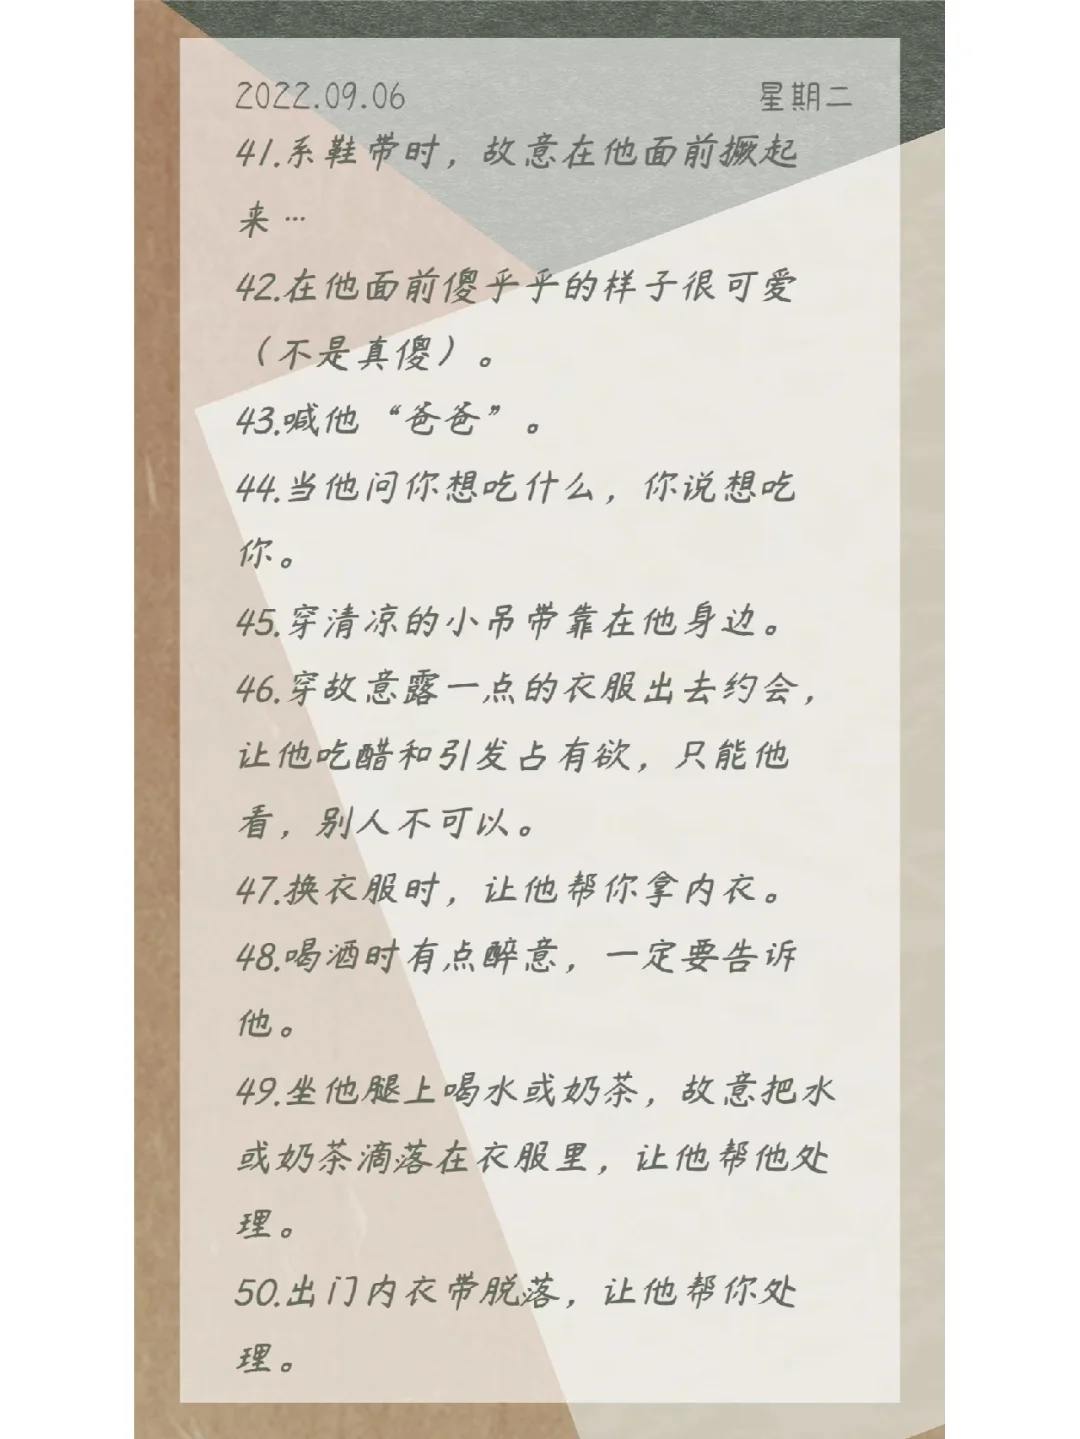 2022.09.06 星期二
41.系鞋带时，故意在他面前撅起
来…
42.在他面前傻乎乎的样子很可爱
（不是真傻）。
43.喊他“爸爸”。
44.当他问你想吃什么，你说想吃
你。
45.穿清凉的小吊带靠在他身边。
46.穿故意露一点的衣服出去约会，
让他吃醋和引发占有欲，只能他
看，别人不可以。
47.换衣服时，让他帮你拿内衣。
48.喝酒时有点醉意，一定要告诉
他。
49.坐他腿上喝水或奶茶，故意把水
或奶茶滴落在衣服里，让他帮他处
理。
50.出门内衣带脱落，让他帮你处
理。